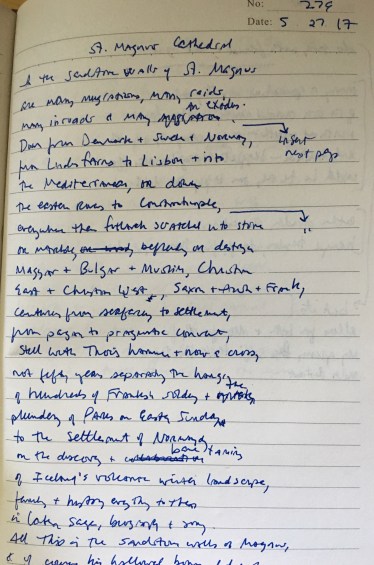 No: 279
Date: 5 27 17
St. Magnus Cathedral
the Sandstone walls of St. Magnus
are many migrations, many raids,
an exodus.
many inroads & many
Down from Denmark + Sweden + Norway,
insert
next page
from Lindisfarne to Lisbon + into
the Mediterranean, or down
the eastern Rivers to Constantinople,
everywhere their futhark scratched into stone
"
or
Magyar + Bulgar + Muslim, Christian
East + Christian West, Saxon + + Frank,
Centuries from seafaring to settlement,
from pagan to pragmatic convert,
still with Thor's hammer + now a cross,
not fifty years separating the hanging
of hundreds of Frankish soldiers + the
plundery of Paris on Easter Sunday
to the settlement of Normandy
or the discovery + taming
of Iceland's volcanic winter landscape,
family + history everything to them
in later Sagas, + song.
All This in the Sandstone walls of Magnus,
his hallowed bones